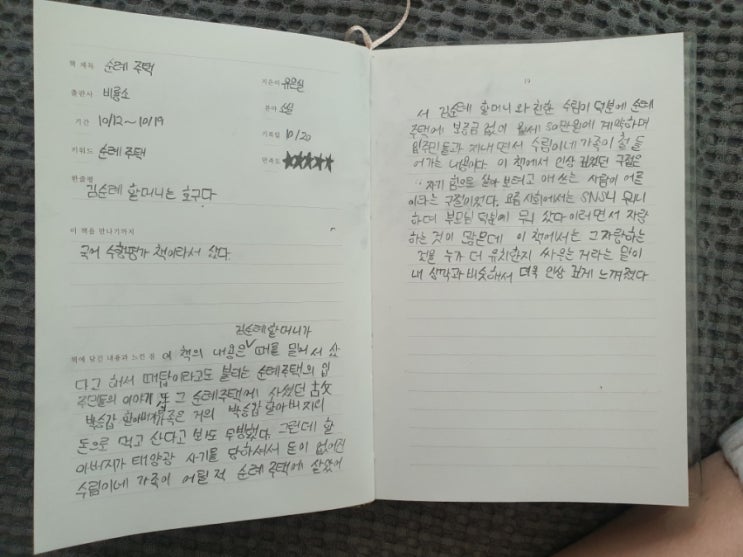 책 제목 순례 주택
지은이 유은실
출판사 비룡소
분야 소설
기간 10/12~10/19
기록일 10/20
키워드 순례 주택
만족도 ★★★★★
한줄평
김순례 할머니는 호구다
이 책을 만나기까지
국어 수행평가 책이라서 샀다.
김순례할머니가
책에 담긴 내용과 느낀 점 이 책의 내용은 ∨ 때를 밀어서 샀
다고 해서 때탑이라고도 불리는 순례주택의 입
주민들의 이야기 그 순례주택에 사셨던 故
박승갑 할아버지 가족은 거의 박승갑 할아버지의
돈으로 먹고 산다고 봐도 무방했다. 그런데 할
아버지가 태양광 사기를 당하셔서 돈이 없어진
수림이네 가족이 어릴 적 순례 주택에 살았어
19
서 김순례 할머니와 친한 수림이 덕분에 순례
주택에 보증금 없이 월세 50만원에 계약하며
입주민들과 지내면서 수림이네 가족이 철 들
어가는 내용이다. 이 책에서 인상 깊었던 구절은
자기 힘으로 살아 보려고 애쓰는 사람이 어른
이라는 구절이었다. 요즘 사회에서는 SNS니 뭐니
하며 부모님 덕분에 뭐 샀다 이러면서 자랑
하는 것이 많은데 이 책에서는 그 자랑하는
것을 누가 더 유치한지 싸우는 거라는 말이
내 생각과 비슷해서 더욱 인상 깊게 느껴졌다